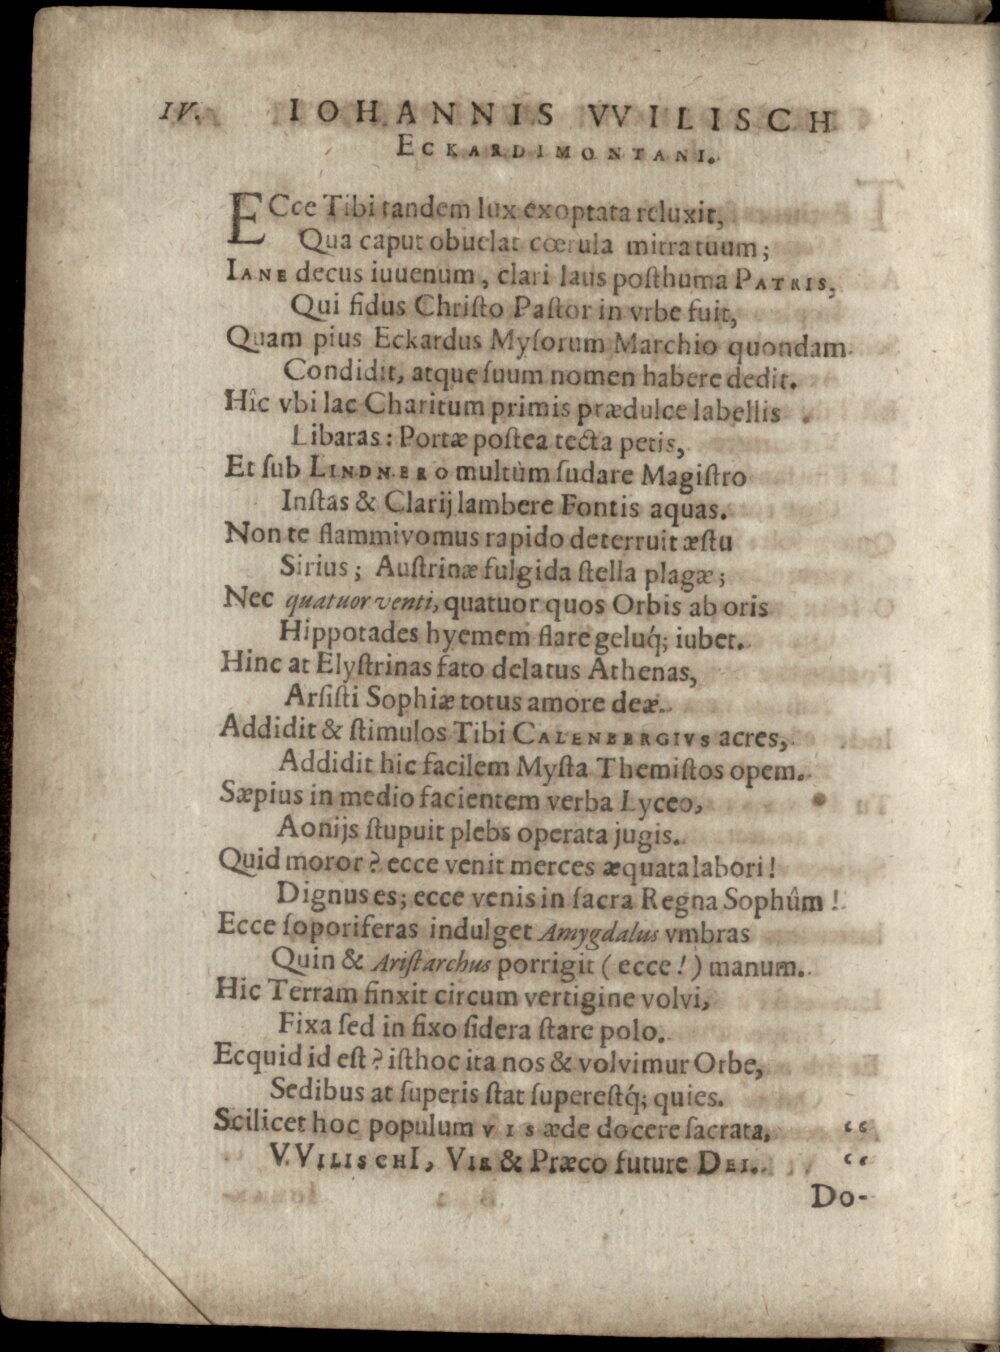 IV. IOHANNIS VVILISCH
ECKARDIMONTANI.
ECce Tibi tandem lux exoptata reluxit,
Qua caput obuelat cœrula mitra tuum;
IANE decus iuuenum, clari laus poſthuma PATRIS,
Qui fidus Chriſto Paſtor in vrbe fuit,
Quam pius Eckardus Myſorum Marchio quondam
Condidit, atque ſuum nomen habere dedit.
Hîc vbi lac Charitum primis prædulce labellis
Libaras: Portæ poſtea tecta petis,
Et ſub LINDNERO multùm ſudare Magiſtro
Inſtas & Clarij lambere Fontis aquas.
Non te flammivomus rapido deterruit æſtu
Sirius; Auſtrinæ fulgida ſtella plagæ;
Nec quatuor venti, quatuor quos Orbis ab oris
Hippotades hyemem flare geluq́; iubet.
Hinc at Elyſtrinas fato delatus Athenas,
Arſiſti Sophiæ totus amore deæ.
Addidit & ſtimulos Tibi CALENBERGIVS acres,
Addidit hic facilem Myſta Themiſtos opem.
Sæpius in medio facientem verba Lyceo,
Aonijs ſtupuit plebs operata jugis.
Quid moror? ecce venit merces æquata labori!
Dignus es; ecce venis in ſacra Regna Sophûm!
Ecce ſoporiferas indulget Amygdalus vmbras
Quin & Ariſtarchus porrigit (ecce!) manum.
Hic Terram finxit circum vertigine volvi,
Fixa ſed in fixo ſidera ſtare polo.
Ecquid id eſt? iſthoc ita nos & volvimur Orbe,
Sedibus at ſuperis ſtat ſupereſtq́; quies.
Scilicet hoc populum VIS æde docere ſacrata, “
VVILISCHI, VIR & Præco future DEI. “
Do-